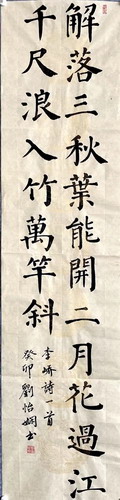 解落三秋葉能開二月花過江
千尺浪入竹萬竿斜
李嶠詩一首
癸卯劉怡嫻書